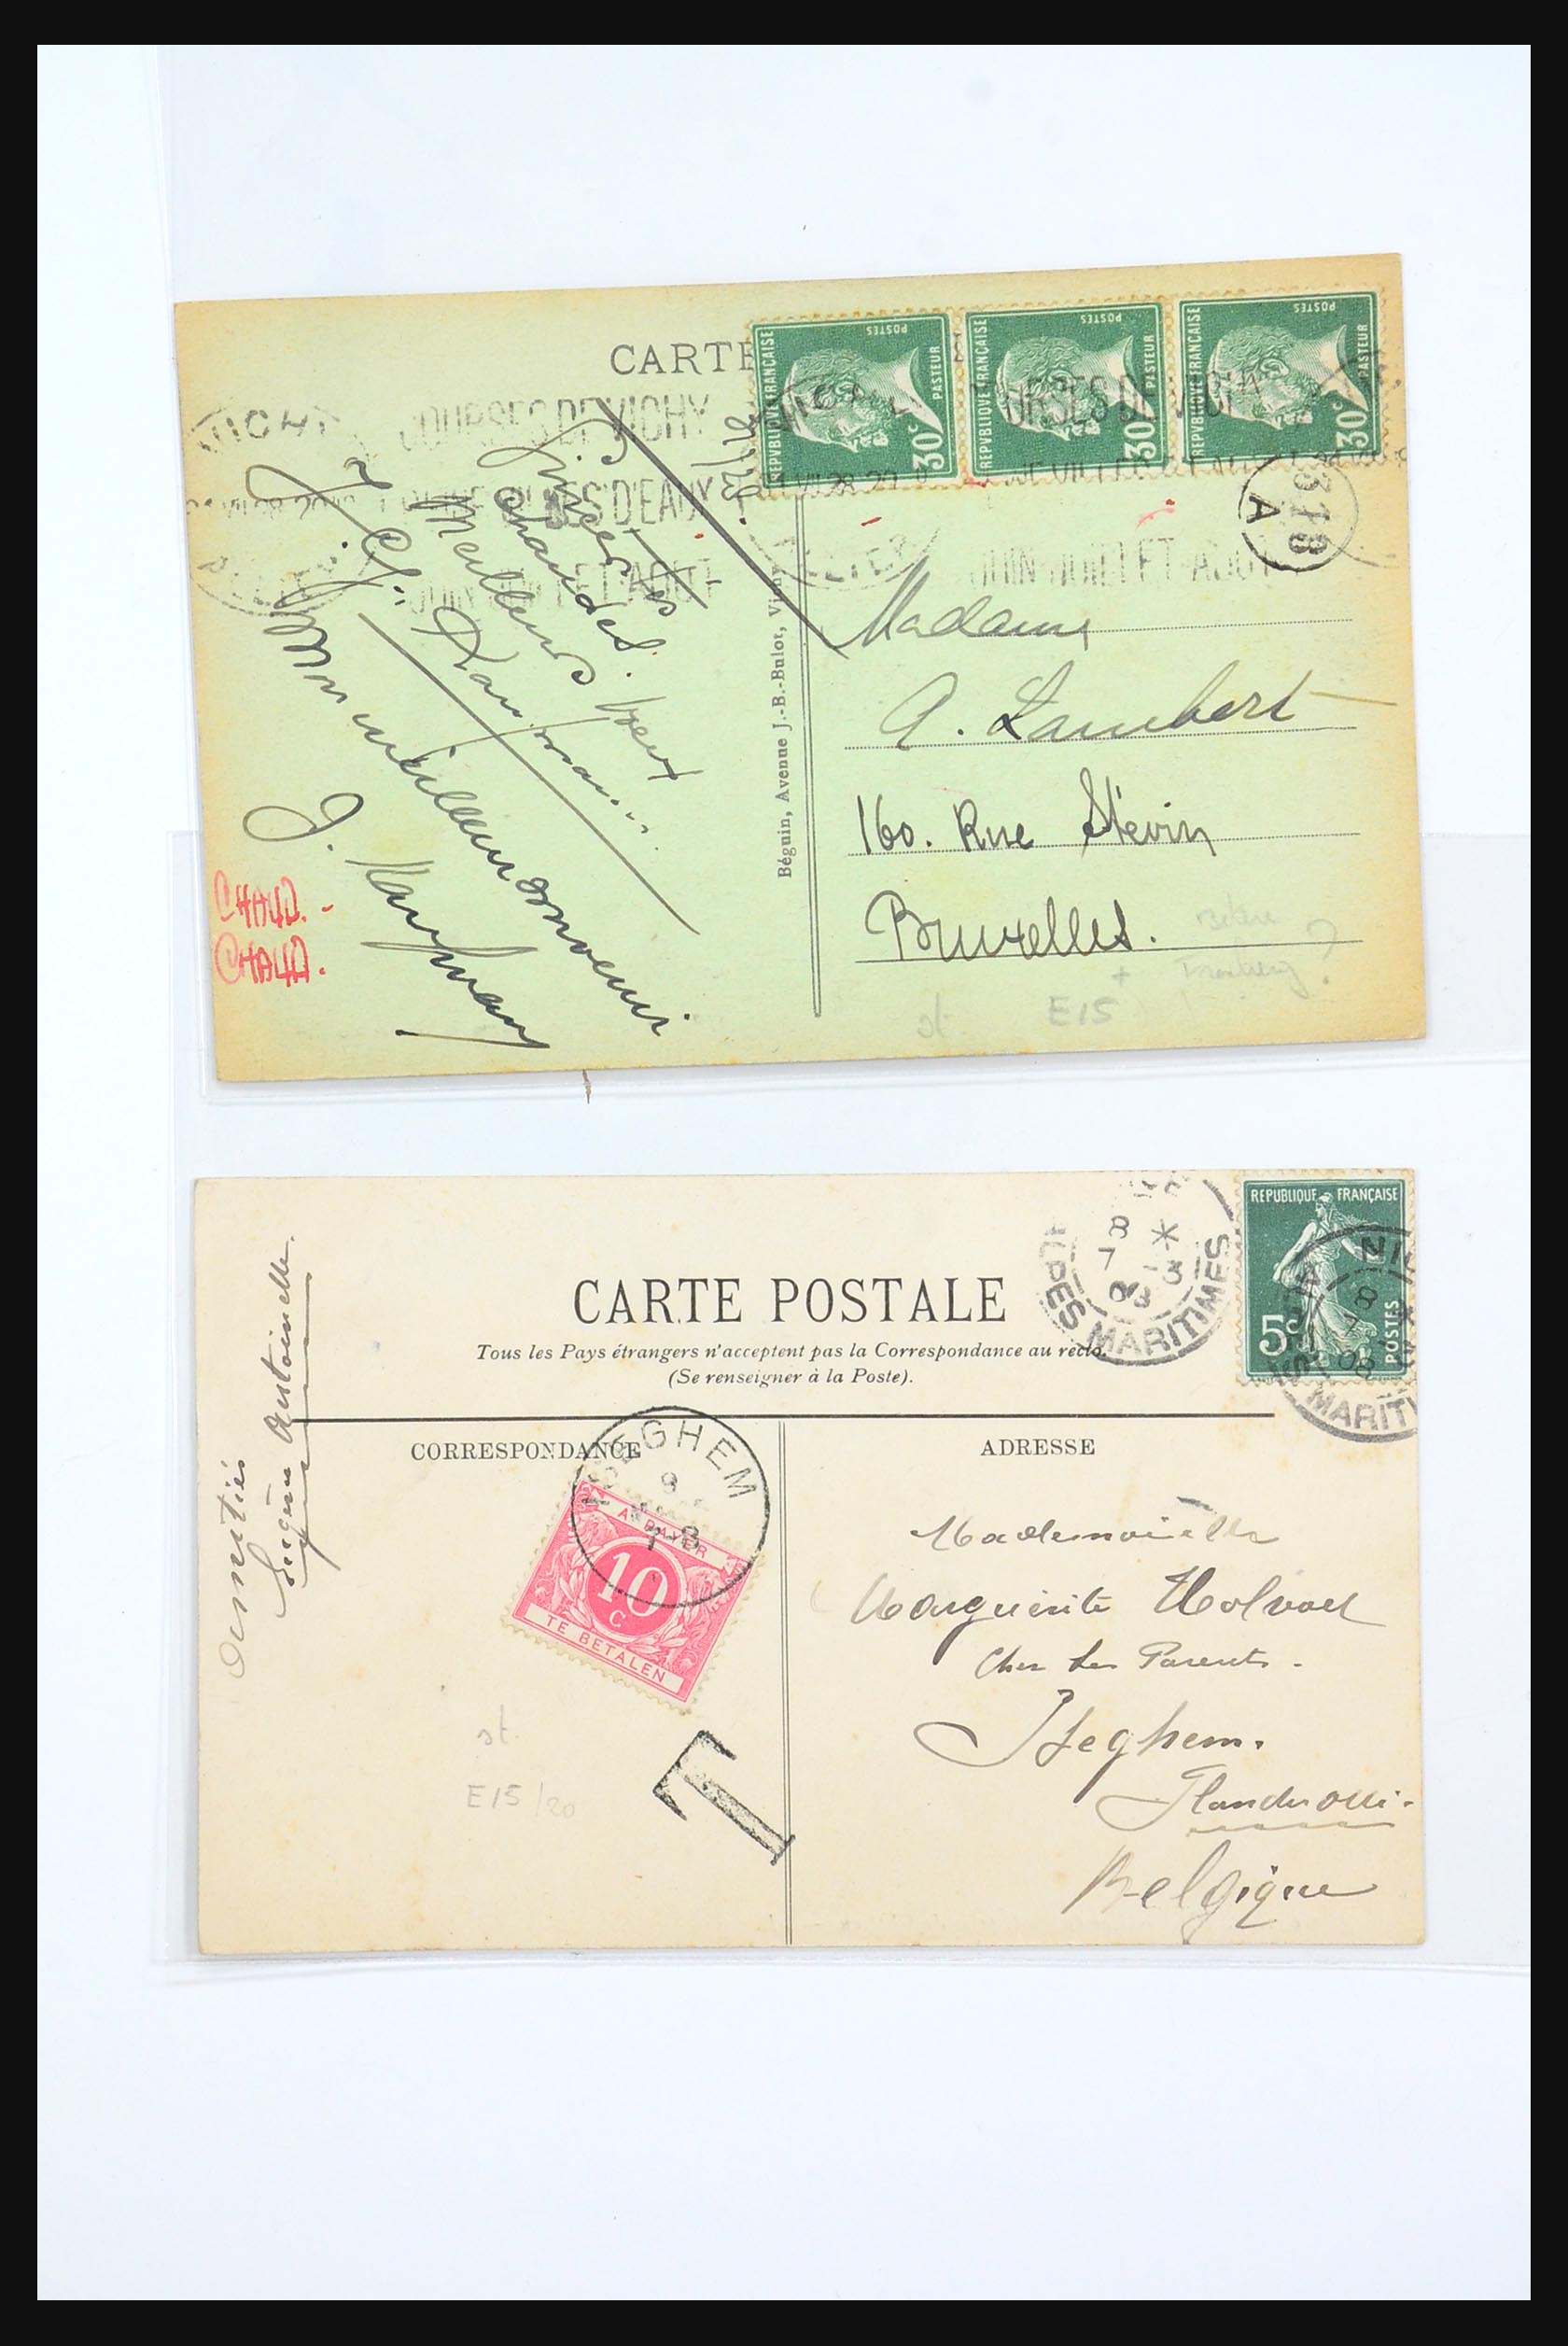 CARTE
REPUBLIQUE FRANÇAISE
POSTES
PASTEUR
30c
REPUBLIQUE FRANÇAISE
POSTES
PASTEUR
30c
REPUBLIQUE FRANÇAISE
POSTES
PASTEUR
30c
VICHY
COURSES DE VICHY
D'EAUX
JUIN JUILLET AOUT
COURSES DE VICHY
JUIN JUILLET AOUT
318
A
Sincères
chaudes.
Meilleurs
Mon meilleur souvenir
J. Kaufmann
CHAUD.
CHAUD.
Béguin, Avenue J.-B.-Bulot, Vichy
Madame
A. Lambert
160. Rue Stévin
Bruxelles.
st
E15
+
?
CARTE POSTALE
Tous les Pays étrangers n'acceptent pas la Correspondance au recto.
(Se renseigner à la Poste).
CORRESPONDANCE
ADRESSE
ALPES MARITIMES
8
7 3
08
REPUBLIQUE FRANÇAISE
5c
POSTES
MARITI
8
7
08
ISEGHEM
A PAYER
10
C
TE BETALEN
T
Amitiés
Eugénie Antoinette.
Mademoiselle
Marguerite Holvoet
Chez ses Parents.
Iseghem.
Flandre occi-
Belgique
st.
E15/20